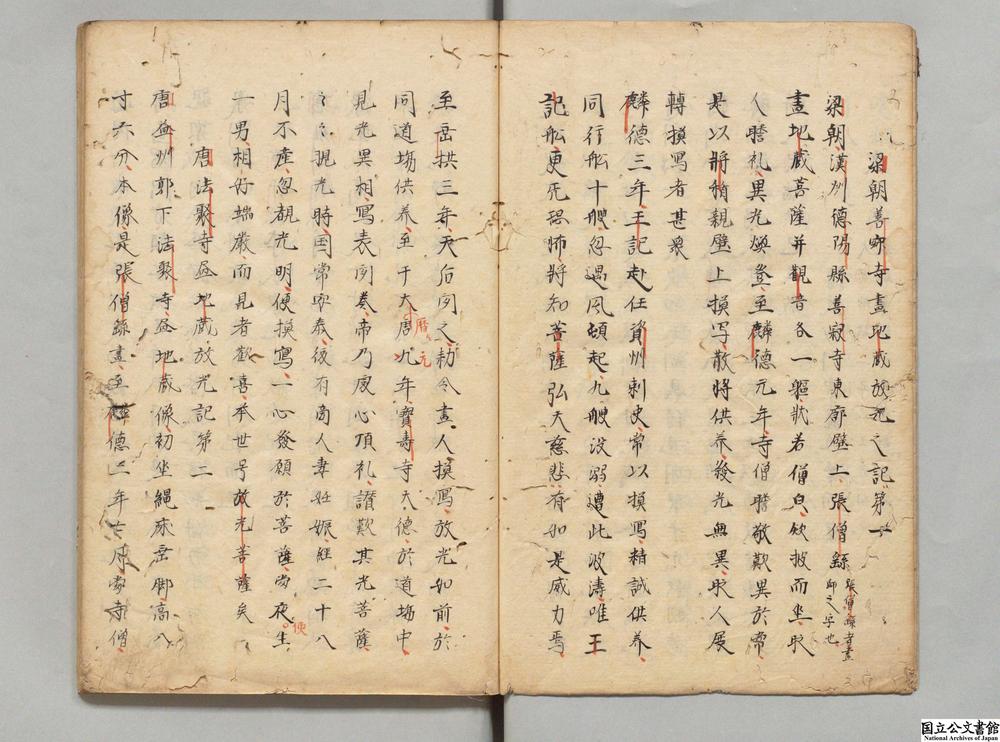 梁朝善寂寺畫地蔵放光之記第一
梁朝漢州德陽縣善寂寺東廊壁上張僧繇張僧繇者畫師之人字也
畫地蔵菩薩并觀音各一軀狀若僧皃斂披而坐时
人瞻礼異光煥發至麟德元年寺僧瞻敬歎異於常
是以將 親壁上摸写散將供养發光無異时人展
轉摸寫者甚衆
麟德三年王記赴任資州刺史常以摸寫精誠供养
同行舩十艘忽遇风頓起九艘没溺遭此波濤唯王
記舩更无恐怖將知菩薩弘大慈悲有如是威力焉
至垂拱三年天后问之勅令畫人摸寫放光如前於
同道場供养至于大曆元九年寶壽寺大德於道場中
見光異相寫表问奏帝乃虔心頂礼讃歎其光菩薩
 現光時国常安泰後有商人妻妊娠經二十八
月不產忽覩光明便摸寫一心發願於菩薩當夜便生
一男相好端嚴而見者歡喜本世号放光菩薩矣
唐法聚寺畫地蔵放光記第二
唐益州郭下法聚寺畫地蔵像初坐繩床垂脚高八
寸六分本像是張僧繇畫至麟德二年七月當寺僧
国立公文書館
National Archives of Japan